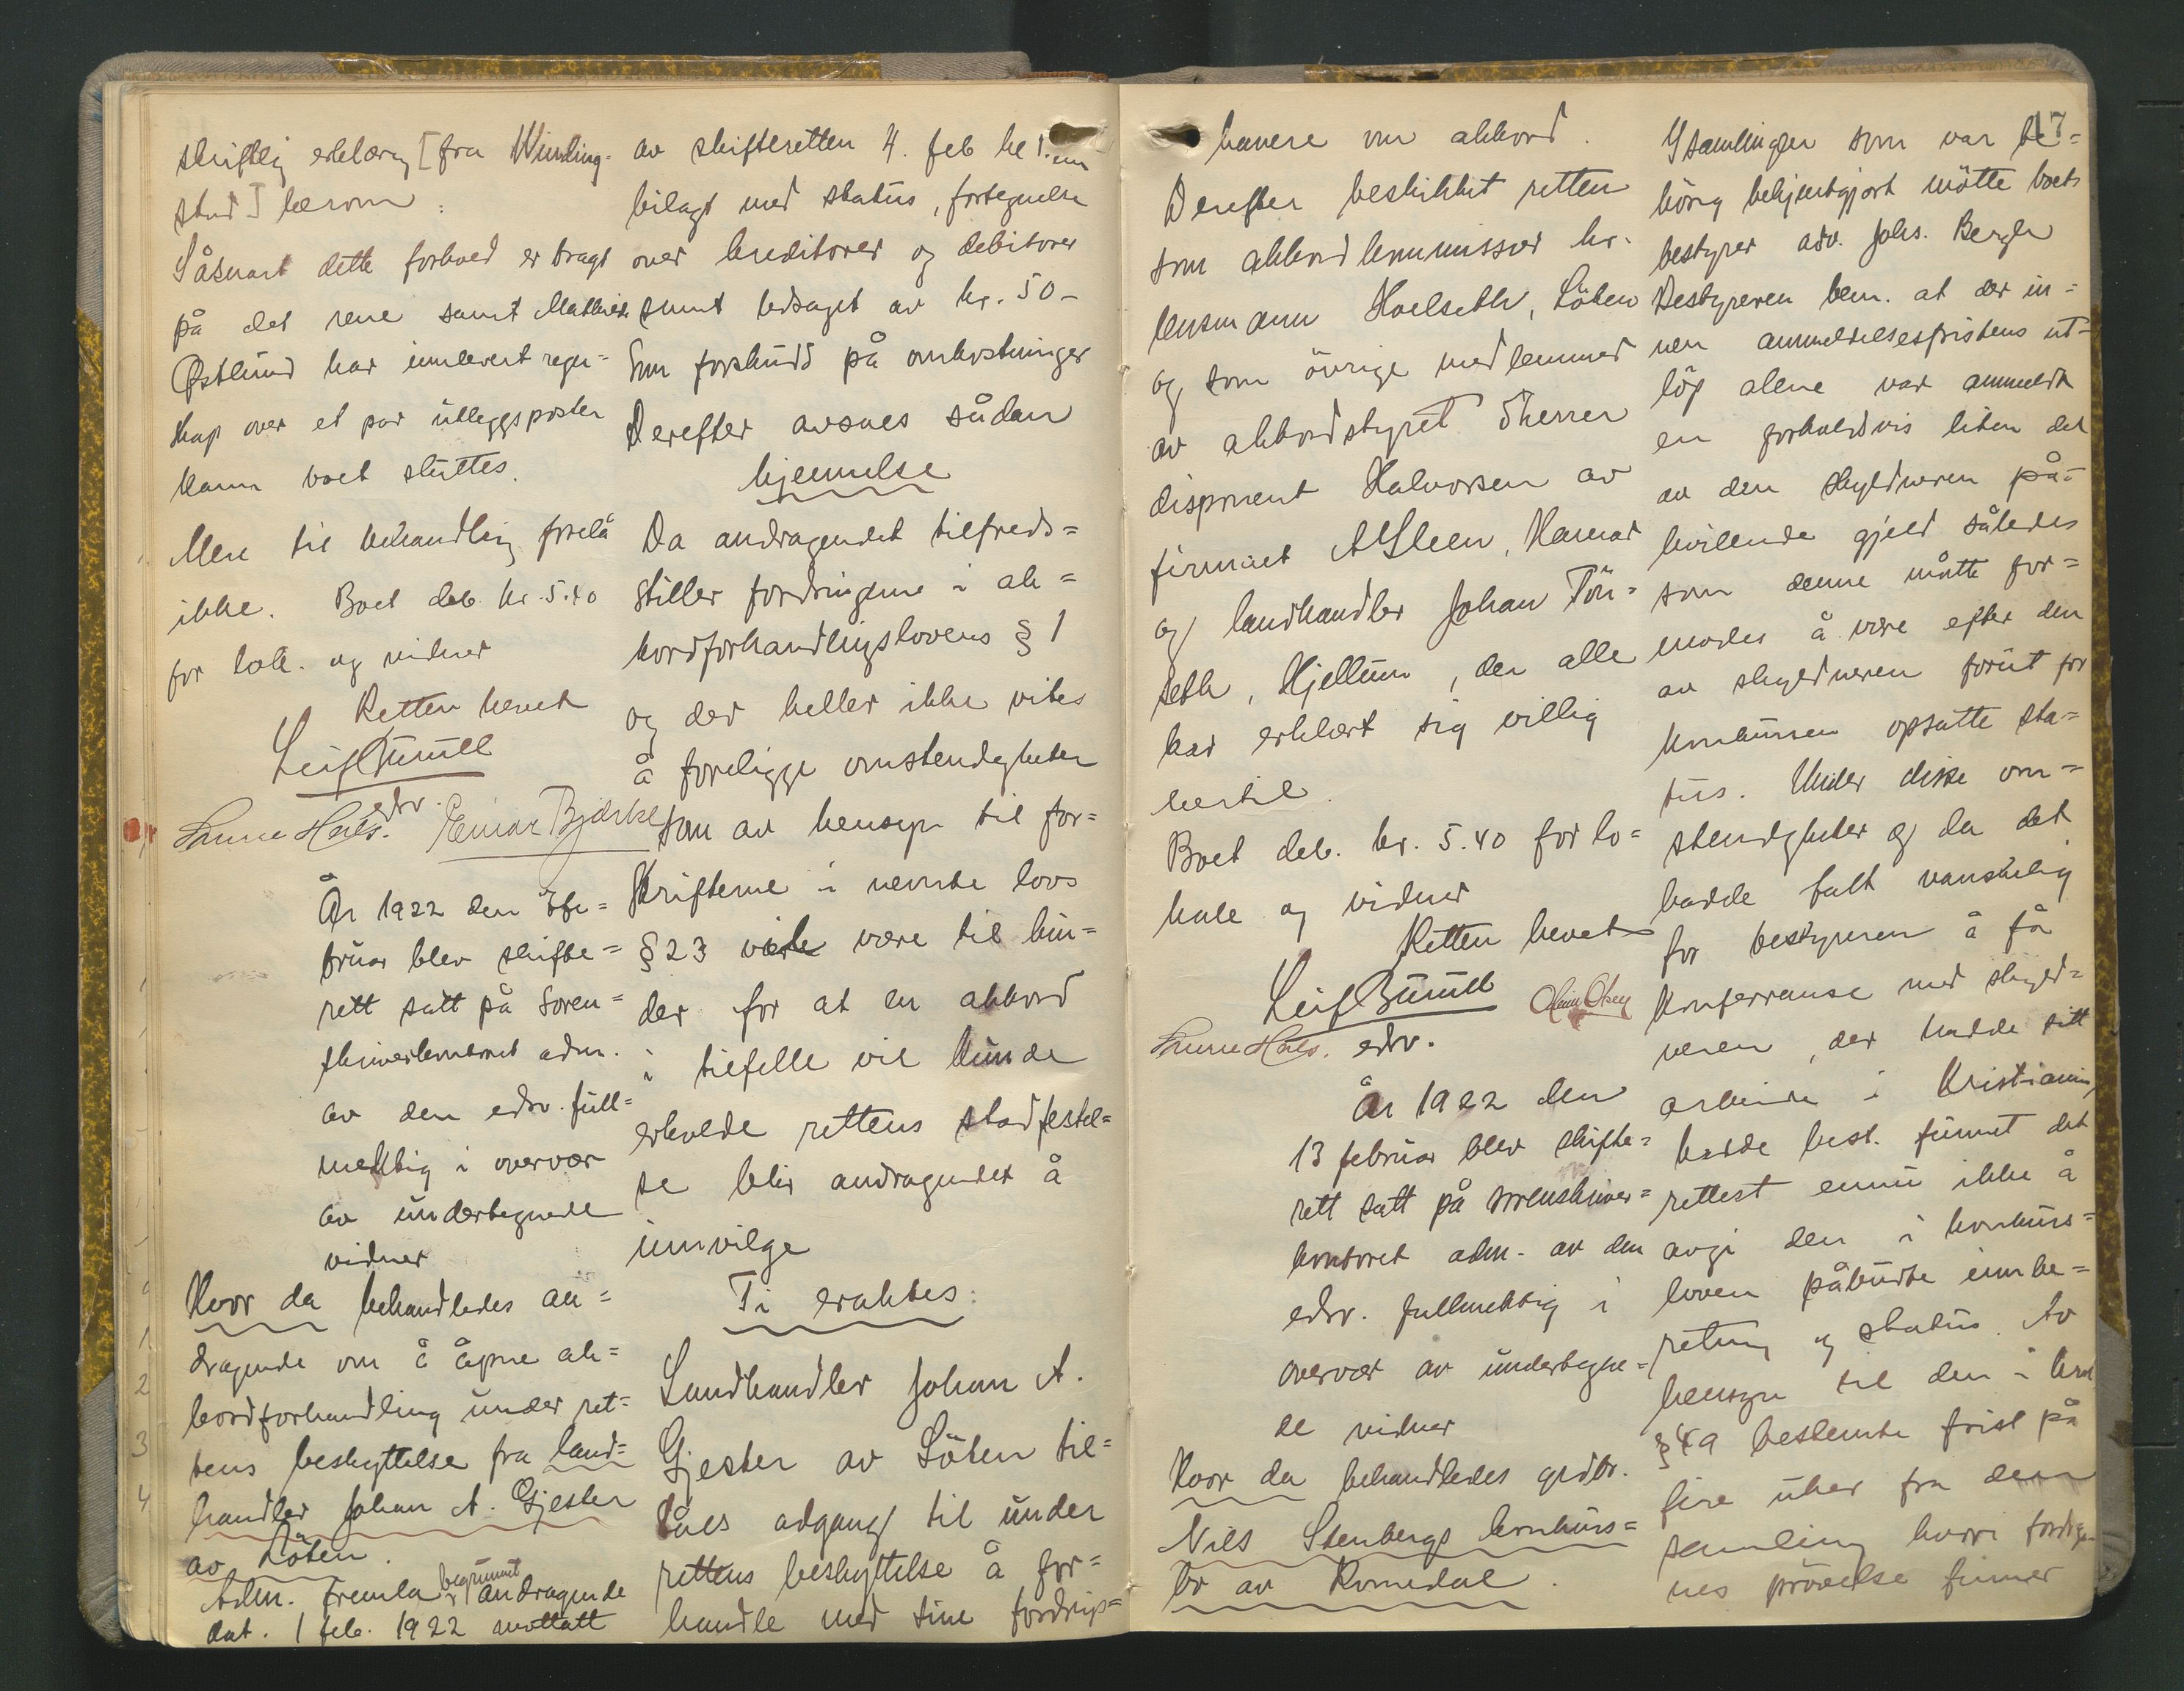 skriftlig erklæring [fra Winding-
stad] herom:
Såsnart dette forhold er bragt
på det rene samt Mathias
Østlund har innlevert regn=
skap over et par utleggsposter
kann boet sluttes.
Mere til behandling forelå
ikke. Boet deb. kr. 5.40
for lok. og vidner
Retten hevet
Leif Bull
edsv.
Hals. Einar Bjørke
År 1922 den 7 fe=
bruar blev skifte=
rett satt på Soren=
skriverkontoret adm.
av den edsv. full=
mektig i overvær
av undertegnede
vidner
Hvor da behandledes an=
dragende om å åpne ak=
kordforhandling under ret=
tens beskyttelse fra land=
handler Johan A. Gjester
av Löten.
Adm. fremla begrunnet andragende
dat. 1 feb. 1922 mottatt
av skifteretten 4. feb
bilagt med status, fortegnelse
over kreditorer og debitorer
samt ledsaget av kr. 50-
som forskudd på omkostninger
Derefter avsaes sådan
kjennelse
Da andragendet tilfreds=
stiller fordringene i ak=
kordforhandlingslovens § 1
og der heller ikke vites
å foreligge omstendigheter
som av hensyn til for=
skriftene i nevnte lovs
§ 23 vil være til hin=
der for at en akkord
i tilfelle vil kunde
erholde rettens stadfestel=
se blir andragendet å
innvilge
Ti eraktes:
Landhandler Johan A.
Gjester av Löten til=
låes adgang til under
rettens beskyttelse å for=
handle med sine fordrings=
17
havere om akkord.
Derefter beskikket retten
som akkordkommissær hr.
lensmann Hoelseth, Löten
og som övrige medlemmer
av akkordstyret D'herrer
disponent Halvorsen av
firmaet A Steen, Hamar
og landhandler Johan Tön=
seth, Hjellum, der alle
har erklært sig villig
hertil.
Boet deb. kr. 5.40 for lo=
kale og vidner
Retten hevet
Leif Bull
Hals. edsv.
År 1922 den
13 februar blev skifte=
rett satt på sorenskriver=
kontoret adm. av den
edsv. fullmektig i
overvær av undertegne=
de vidner
Hvor da behandledes grdbr.
Nils Stenbergs konkurs=
bo av Romedal.
I samlingen som var be=
hörig bekjentgjort mötte boets
bestyrer adv. Johs. Bergh
Bestyreren bem. at der in=
nen anmeldelsesfristens ut=
löp alene var anmeldt
en forholdsvis liten del
av den skyldneren på=
hvilende gjeld således
som denne måtte for=
modes å være efter den
av skyldneren forut for
konkursen opsatte sta=
tus. Under disse om=
stendigheter og da det
hadde falt vanskelig
for bestyreren å få
konferranse med skyld=
neren, der hadde sitt
arbeide i Kristiania,
hadde best. funnet det
rettest ennu ikke å
avgi den i konkurs=
loven påbudte innbe=
retning og status. Av
hensyn til den i
§ 49 bestemte frist på
fire uker fra den
samling hvori
nes prövelse finner